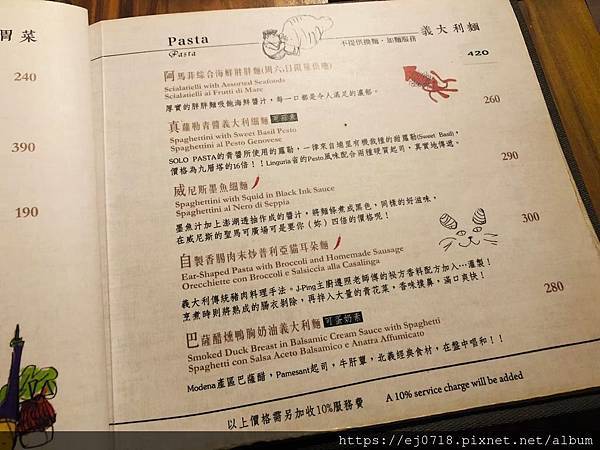 胃菜
240
390
190
Pasta
Pasta
不提供換麵、加麵服務
義大利麵
阿馬菲綜合海鮮胖胖麵(周六,日限量供應)
420
Scialatielli with Assorted Seafoods
Scialatielli ai Frutti di Mare
厚實的胖胖麵吸飽海鮮醬汁,每一口都是令人滿足的濃郁。
真蘿勒青醬義大利細麵 可蛋素
260
Spaghettini with Sweet Basil Pesto
Spaghettini al Pesto Genovese
SOLO PASTA的青醬所使用的蘿勒,一律來自埔里有機栽種的甜蘿勒(Sweet Basil),
價格為九層塔的16倍!!Linguria省的Pesto風味配合兩種硬質起司,真實地傳遞。
威尼斯墨魚細麵
290
Spaghettini with Squid in Black Ink Sauce
Spaghettini al Nero di Seppia
墨魚汁加上澎湖透抽作成的醬汁,將麵條煮成黑色,同樣的好滋味,
在威尼斯的聖馬可廣場可是要你(妳)四倍的價格呢!
自製香腸肉末炒普利亞貓耳朵麵
300
Ear-Shaped Pasta with Broccoli and Homemade Sausage
Orecchiette con Broccoli e Salsiccia alla Casalinga
義大利傳統豬肉料理手法。J-Ping主廚遵照老師傅的秘方香料配方加入…灌製!
烹煮時則將熟成的腸衣剔除,再拌入大量的青花菜,香味撲鼻,滿口爽快!
巴薩醋燻鴨胸奶油義大利麵 可蛋奶素
280
Smoked Duck Breast in Balsamic Cream Sauce with Spaghetti
Spaghetti con Salsa Aceto Balsamico e Anatra Affumicato
Modena產區巴薩醋,Pamesant起司,牛肝蕈,北義經典食材,在盤中唱和!!
以上價格需另加收10%服務費
A 10% service charge will be added
https://ej0718.pixnet.net/album